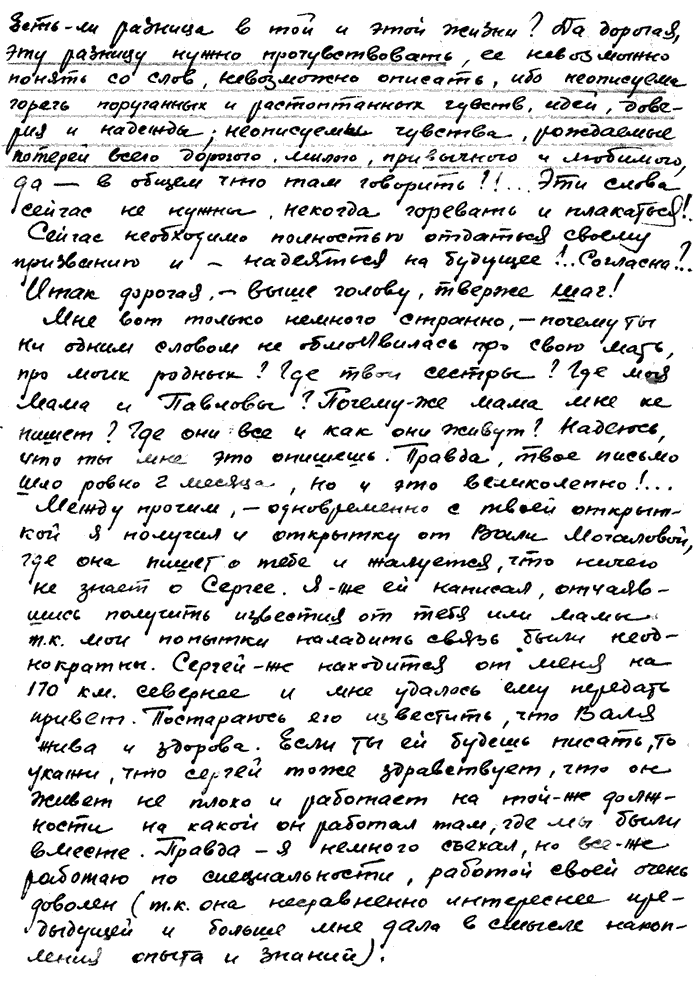 Есть-ли разница в той и этой жизни? Да дорогая,
эту разницу нужно прочувствовать, ее невозможно
понять со слов, невозможно описать, ибо неописуема
горечь поруганных и растоптанных чувств, идей, дове-
рия и надежды; неописуемы чувства, рождаемые
потерей всего дорогого, милого, привычного и любимого,
да — в общем что там говорить?!!... Эти слова
сейчас не нужны, некогда горевать и плакаться!.
Сейчас необходимо полностью отдаться своему
призванию и – надеяться на будущее!.. Согласна?.
Итак дорогая, – выше голову, тверже шаг!
Мне вот только немного странно, – почему ты
ни одним словом не обмолвилась про свою мать,
про моих родных? Где твои сестры? Где моя
мама и Павловы? Почему-же мама мне не
пишет? Где они все и как они живут? Надеюсь,
что ты мне это опишешь. Правда, твое письмо
шло ровно 2 месяца, но и это великолепно!...
Между прочим, – одновременно с твоей открыт-
кой я получил и открытку от Вали Мочаловой,
где она пишет о тебе и жалуется, что ничего
не знает о Сергее. Я-же ей написал, отчаяв-
шись получить известия от тебя или мамы
т.к. мои попытки наладить связь были неод-
нократны. Сергей-же находится от меня на
170 км. севернее и мне удалось ему передать
привет. Постараюсь его известить, что Валя
жива и здорова. Если ты ей будешь писать, то
укажи, что сергей тоже здравствует, что он
живет не плохо и работает на той-же долж-
ности на какой он работал там, где мы были
вместе. Правда – я немного съехал, но все-же
работаю по специальности, работой своей очень
доволен (т.к. она несравненно интереснее пре-
дыдущей и больше мне дала в смысле накоп-
ления опыта и знаний).